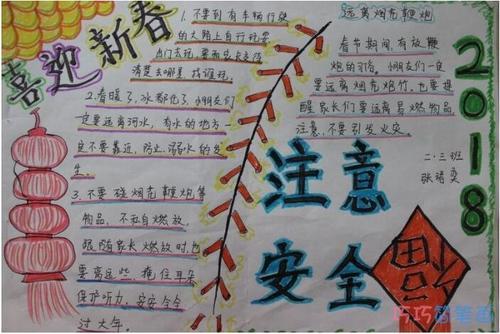 喜迎新春
1.不要到有车辆行驶
的大路上自行玩耍
出门去玩,要和家长交待
清楚去哪里,找谁玩。
2.春暖了,冰都化了,小朋友们一
定要远离河水,有水的地方一
定不要靠近,防止溺水的发
生。
3.不要碰烟壳鞭炮等
物品,不私自燃放,
跟随家长燃放时,也
要离远些,捂住耳朵
保护听力,安安全全
过大年。
远离烟壳鞭炮
春节期间,有放鞭
炮的习俗。小朋友们一定
要远离烟壳炮竹,也要提
醒家长们要远离易燃物品
注意,不要引发火灾。
二·三班
注意
安全
2018
福
巧巧简笔画